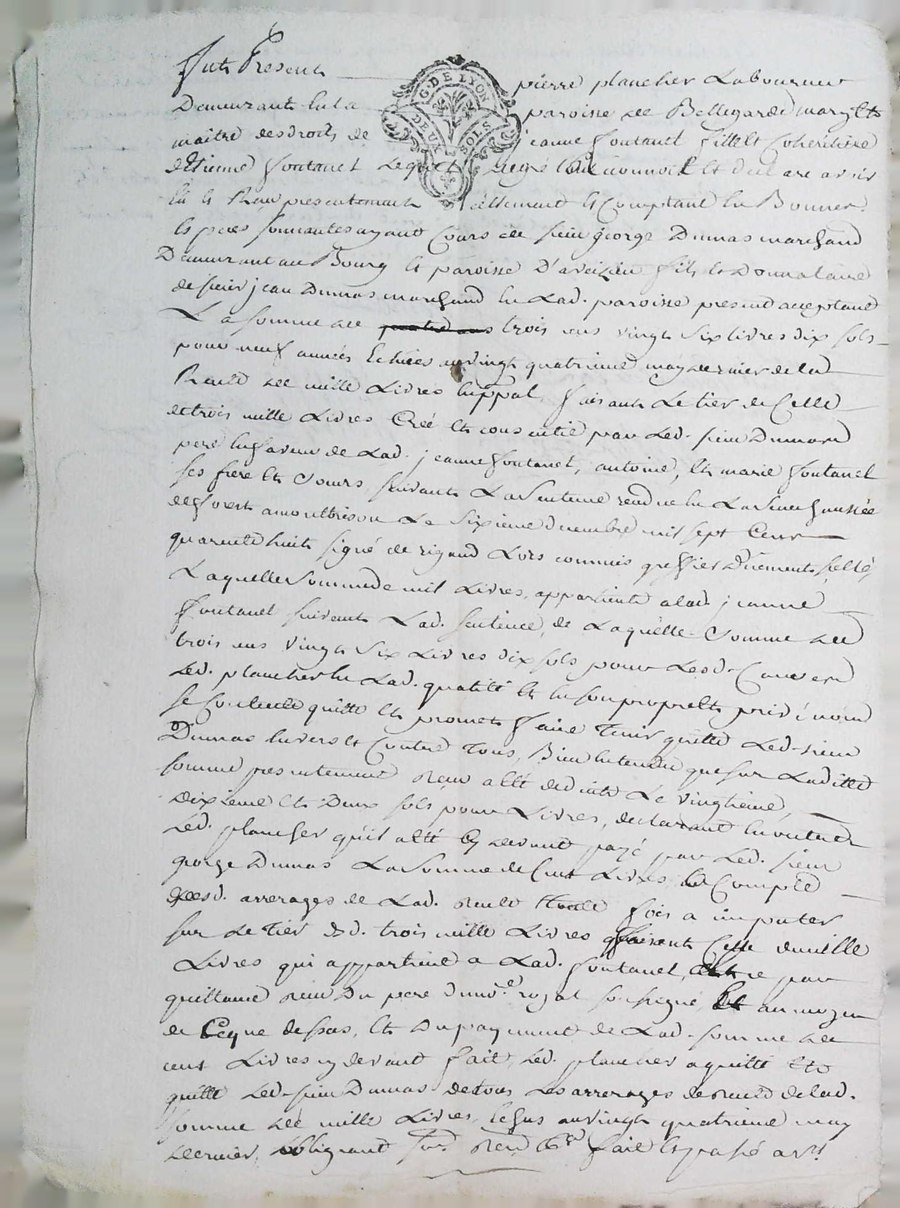 Fut Présent pierre plancher Laboureur
G. DE LYON
DEUX SOLS
Demeurant en la paroisse de Bellegarde mary et
maitre des droits de jeanne fontanel fille et coheritiere
d'Etienne fontanel Lequel de gré reconnoit et declare avoir
Eü et Reçu presentement réellement et Comptant En Bonnes
Especes sonnantes ayant Cours de sieur george Dumas marchand
Demeurant au Bourg et paroisse D'aveizieu fils et Donnataire
de sieur jean Dumas marchand En Lad. paroisse present acceptant
La somme de trois cens vingt six livres dix sols
pour neuf années Echües au vingt quatrieme may dernier de la
Rente de mille Livres faisant Le tier de Celle
de trois mille Livres Créé et constitué par Led. sieur Dumas
pere En faveur de Lad. jeanne fontanel, antoine, et marie fontanel
ses frere et sœurs suivant La sentence rendue En La senechaussée
de forest a montbrison Le sixieme decembre mil sept Cens
quarente huit signé de rigaud Lors commis greffier düement scellé,
Laquelle somme de mil Livres, appartient a lad. jeanne
fontanel suivant Lad. sentence, de Laquelle somme de
trois cens vingt six Livres dix sols pour Lesd. Causes
Led. plancher En Lad. qualité et En son propre et privé nom
se contente quitte et promet faire Tenir quitte Led. sieur
Dumas Envers et Contre Tous, Bien Entendu que sur Laditte
somme presentement Reçue a été deduit Le vingtieme,
dixieme et Deux sols pour Livres, declarant En outre
Led. plancher qu'il a été Cy devant payé par Led. sieur
george Dumas La somme de Cent Livres a Compte
desd. arrerages de Lad. rente fois a imputer
sur Le tier desd. trois mille Livres faisant Celle de mille
Livres qui appartient a Lad. fontanel, par
quittance Reçue Du pere Du no.re royal soussigné, Et au moyen
de Ce que dessus, et Du payement de Lad. somme de
cent Livres cy devant fait, Led. plancher a quitté et
quitte Led. sieur Dumas de tous Les arrerages de rente de lad.
somme de mille Livres, Echus au vingt quatrieme may
dernier, obligeant fait et passé